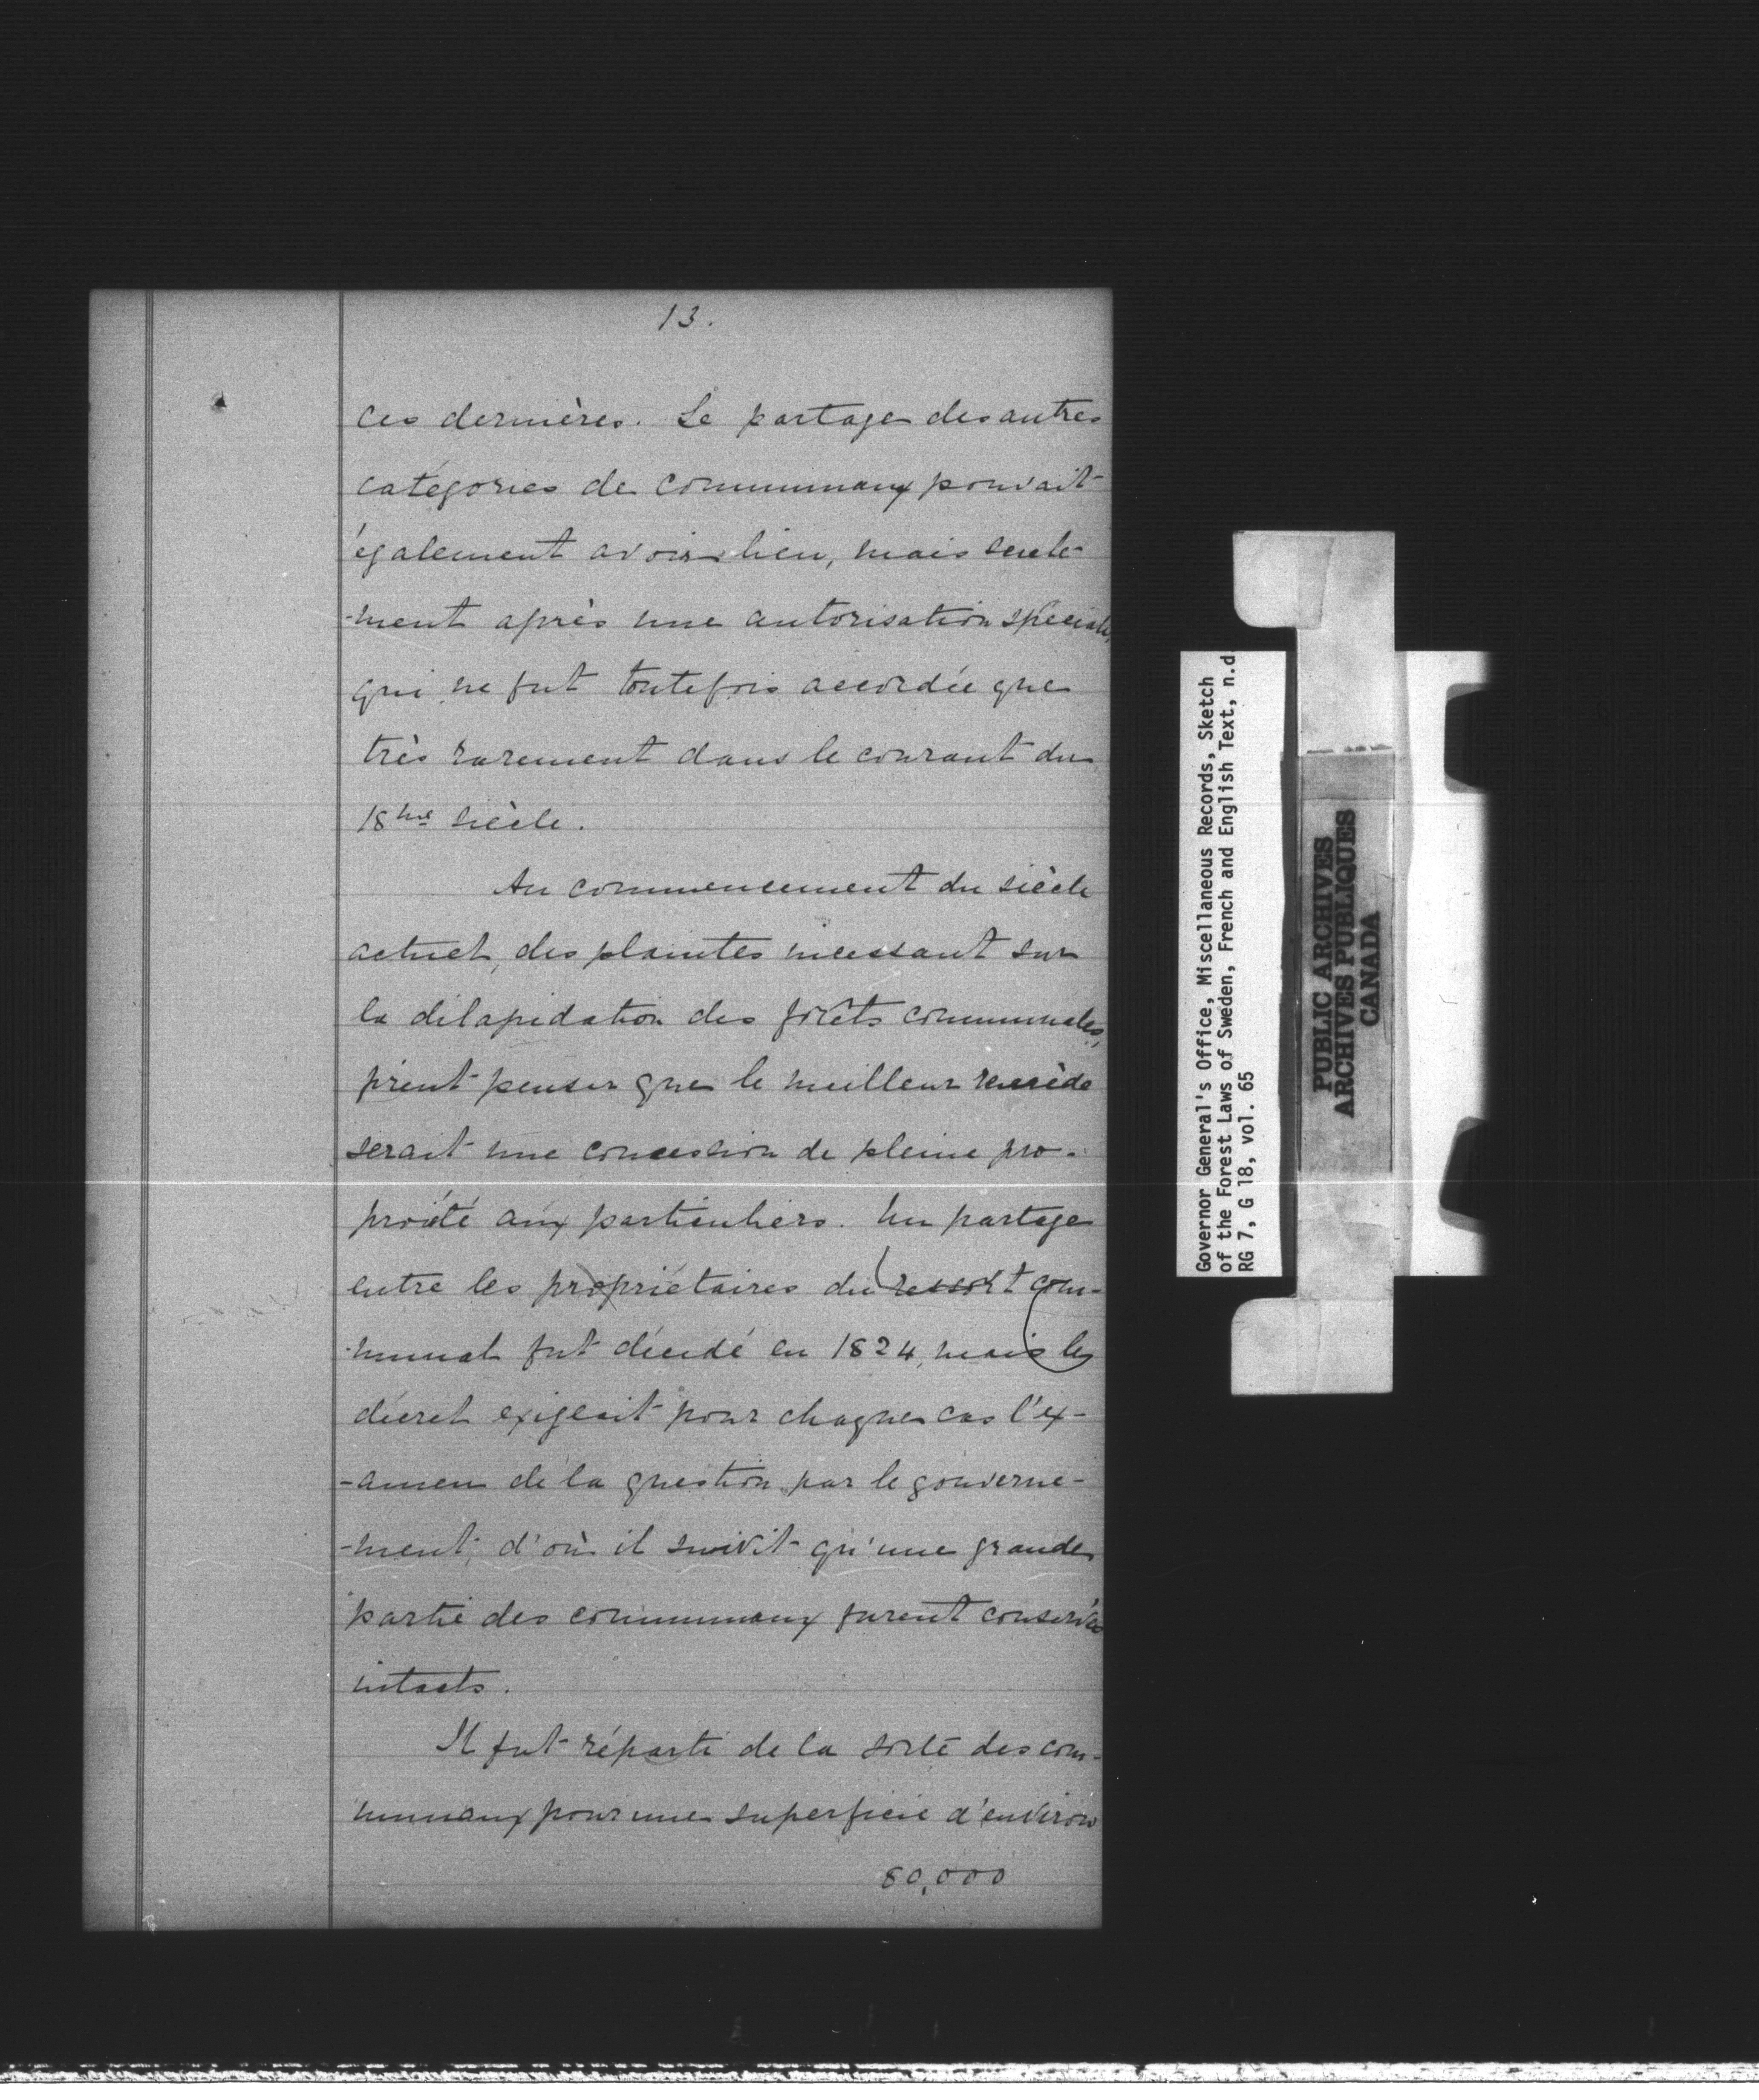 13.
ces dernières. Le partage des autres
catégories de communaux pouvait
également avoir lieu, mais seule-
-ment après une autorisation spéciale,
qui ne fut toutefois accordée que
très rarement dans le courant du
18me siècle.
Au commencement du siècle
actuel, des plaintes incessant sur
la dilapidation des forêts communales,
firent penser que le meilleur remède
serait une concession de pleine pro-
priété aux particuliers. Un partage
entre les propriétaires du ressort com-
-munal fut décidé en 1824, mais le
décret exigeait pour chaque cas l'ex-
-amen de la question par le gouverne-
-ment, d'où il suivit qu'une grande
partie des communaux furent conservés
intacts.
Il fut réparti de la sorte des com-
munaux pour une superficie d'environ
80,000
Governor General's Office, Miscellaneous Records, Sketch
of the Forest Laws of Sweden, French and English Text, n.d.
RG 7, G 18, vol. 65
PUBLIC ARCHIVES
ARCHIVES PUBLIQUES
CANADA